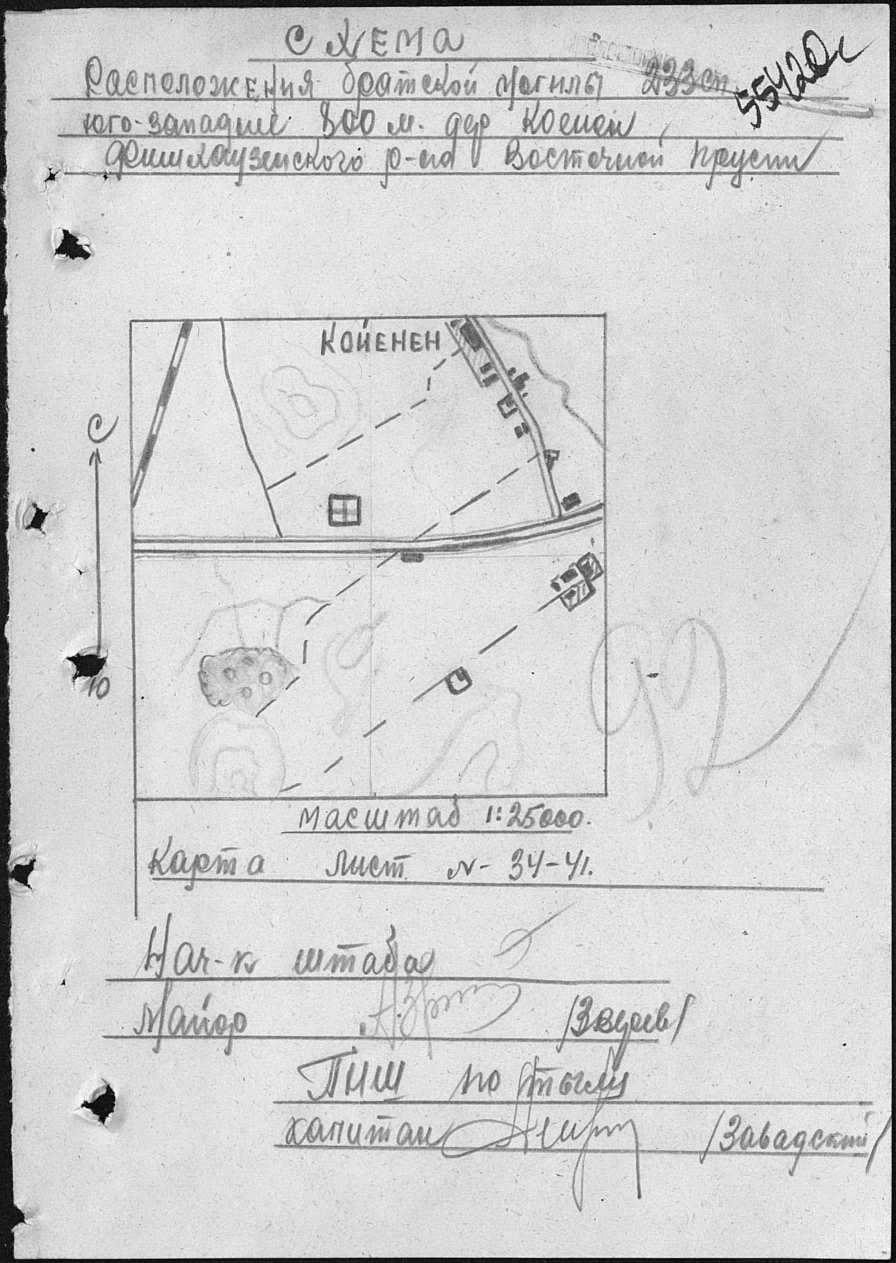 СХЕМА
Расположения братской могилы 233 сп
55420с
юго-западнее 800 м. дер Коенен,
Фишхаузенского р-на Восточной Пруссии
КОЙЕНЕН
С
Ю
92
масштаб 1:25000.
Карта лист N- 34-41.
Нач-к штаба
Майор /Зверев/
ПНШ по тылу
капитан /Завадский/